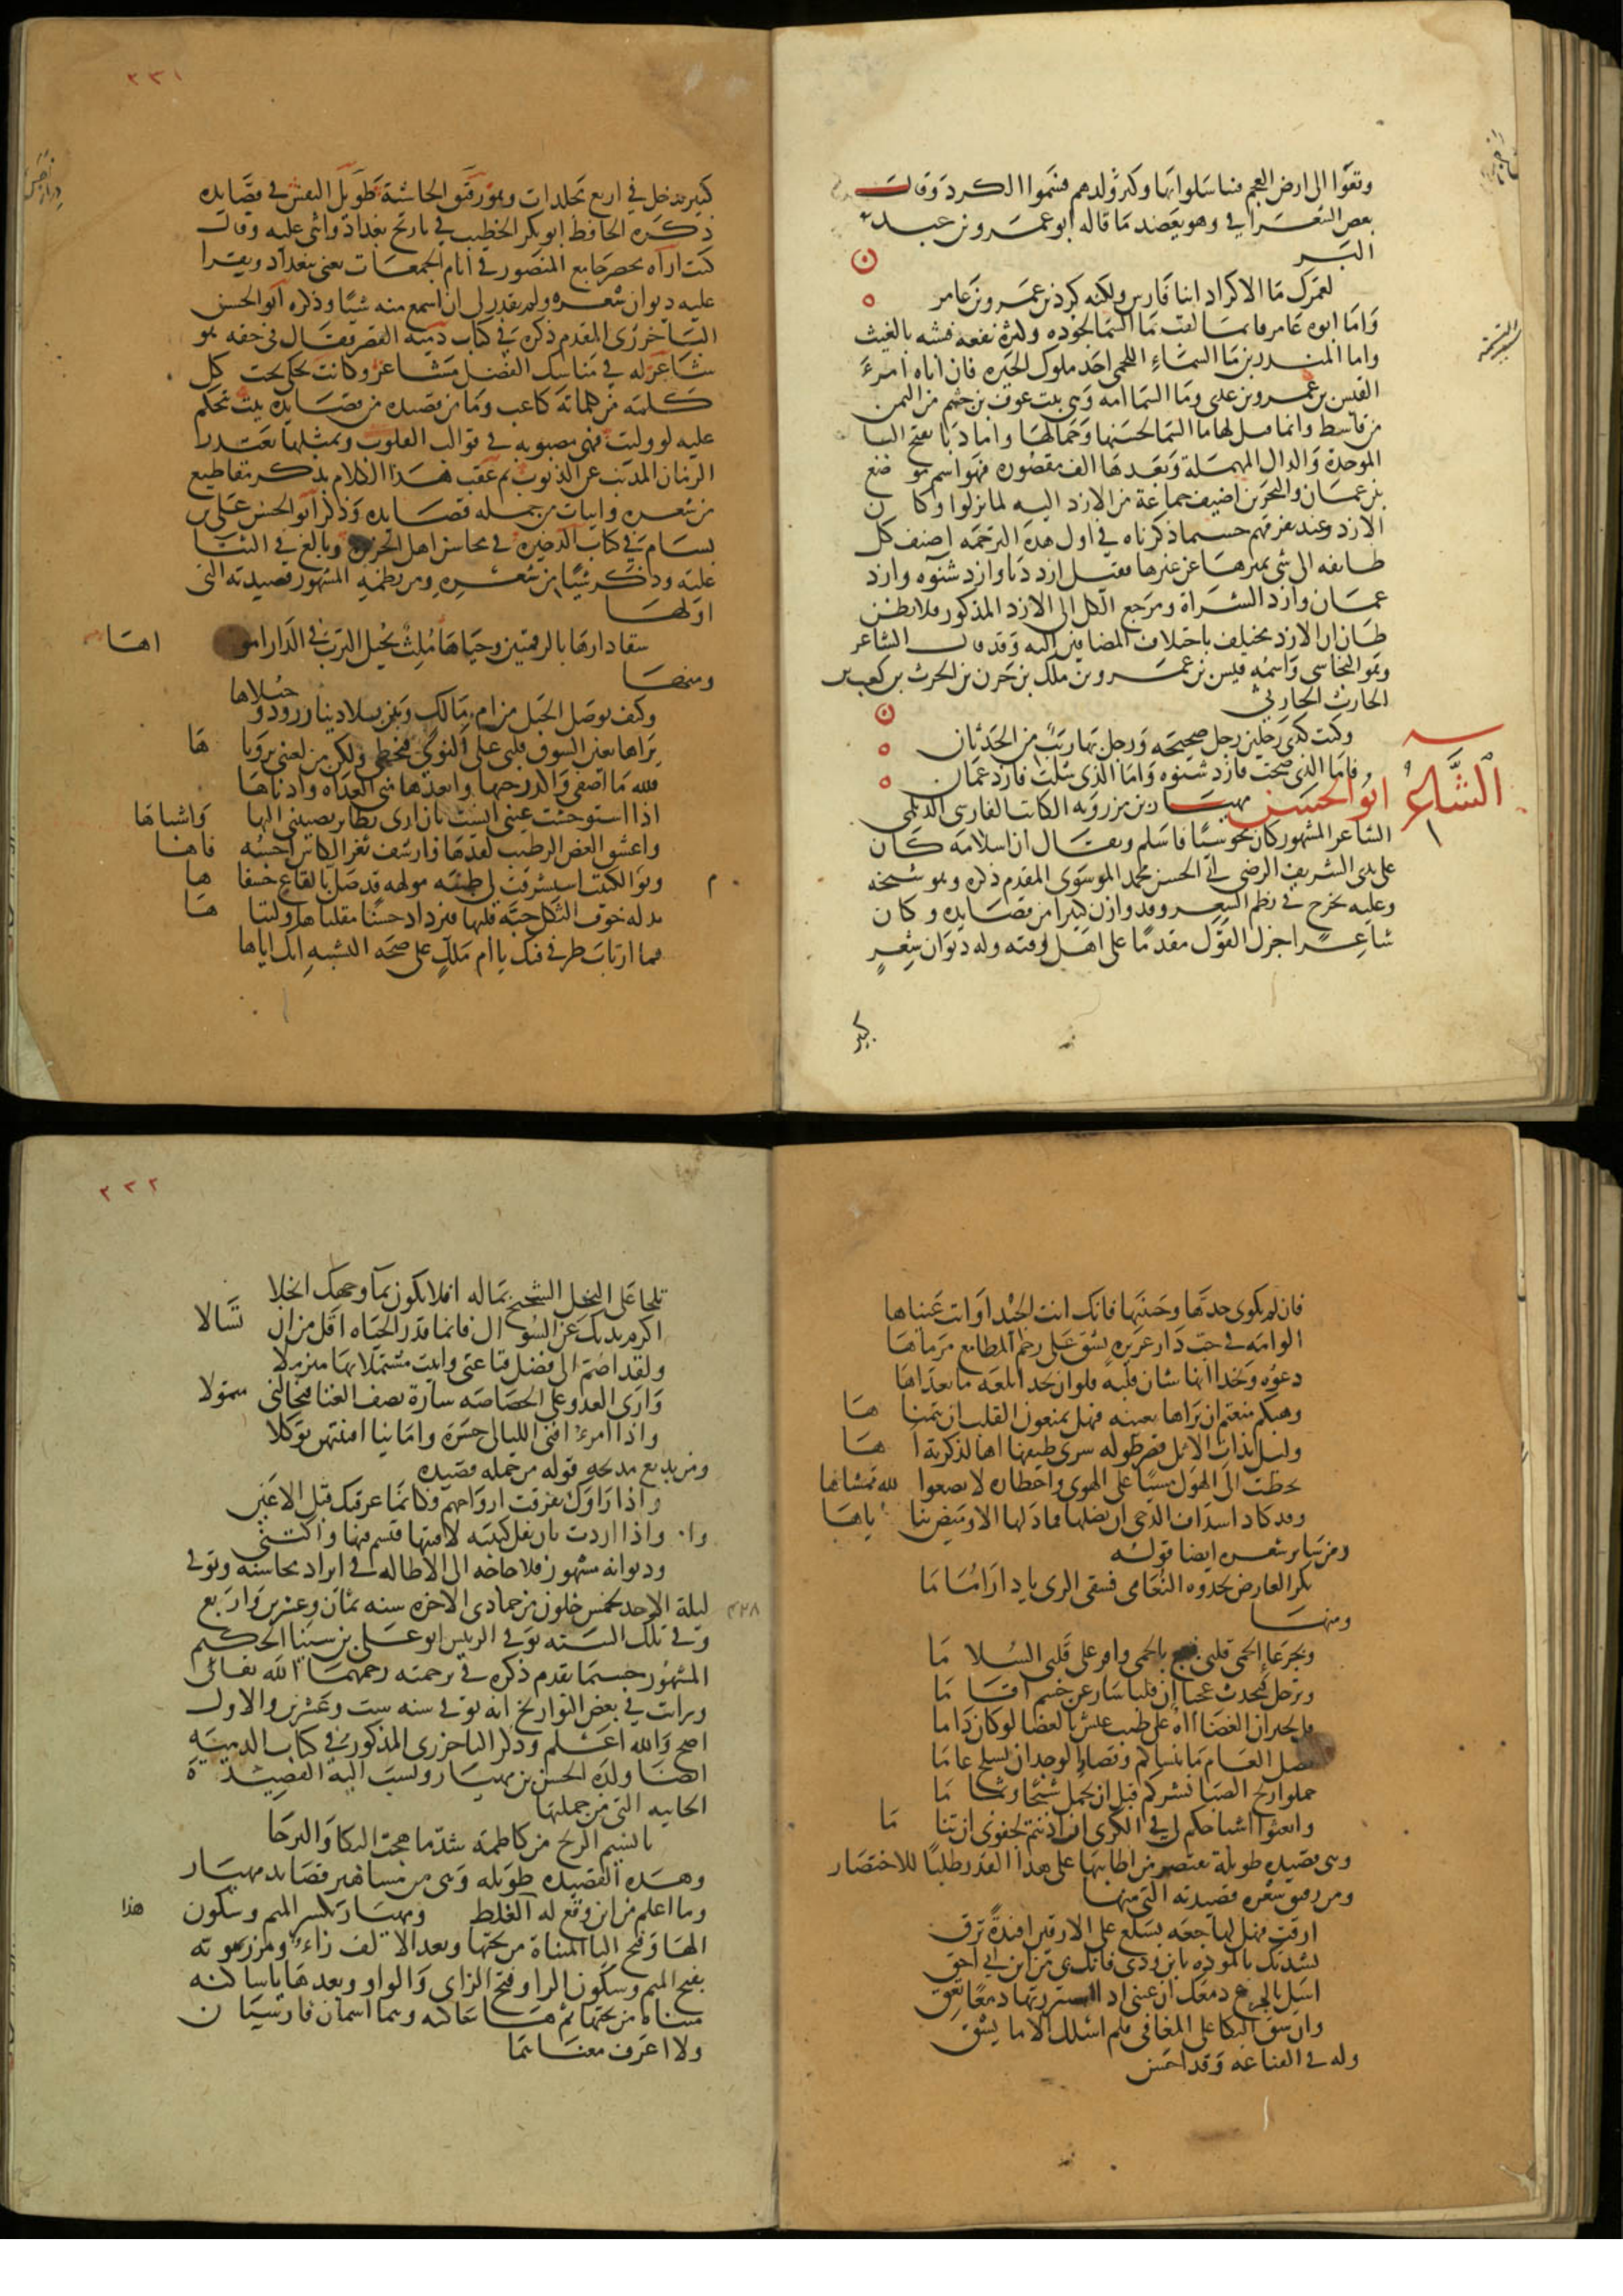 وتقوا الى ارض العجم فتناسلوا بها وكثر ولدهم فسموا الكرد وقال
بعض الشعرا في وهو يعضد ما قاله ابو عمرو بن عبد
البر
لعمرك ما الاكراد ابنا فارس ولكنه كرد بن عمرو بن عامر
واما ابوه عامر فانما لقب ما السما لجوده وكثرة نفعه فشبه بالغيث
واما المنذر بن ما السماء اللخمي احد ملوك الحيره فان اباه امرء
القيس بن عمرو بن عدي وما السما امه وهي بنت عوف بن جشم من النمر
بن قاسط وانما قيل لها ما السما لحسنها وجمالها واما دبا بفتح البا
الموحدة والدال المهملة وبعدها الف مقصوره فهو اسم موضع
بين عمان والبحرين اضيف جماعة من الازد اليه لما نزلوا وكان
الازد عند تفرقهم حسبما ذكرناه في اول هذه الترجمة اضيف كل
طايفه الى شي يميزها عن غيرها فقيل ازد دبا وازد شنوه وازد
عمان وازد السراة ومرجع الكل الى الازد المذكور فلا يظن
ظان ان الازد مختلف باختلاف المضافين اليه وقد قال الشاعر
وهو النجاشي واسمه قيس بن عمرو بن ملك بن حزن بن الحرث بن كعب بن
الحارث الحارثي
وكنت كذي رجلين رجل صحيحة ورجل بها ريب من الحدثان
فاما الذي صحت فازد شنوه واما الذي شلت فازد عمان
الشاعر ابو الحسن مهيار بن مرزويه الكاتب الفارسي الديلمي
الشاعر المشهور كان مجوسيا فاسلم ويقال ان اسلامه كان
على يدي الشريف الرضي ابي الحسن محمد الموسوي المقدم ذكره وهو شيخه
وعليه تخرج في نظم الشعر وقد وازن كثيرا من قصايده وكان
شاعرا جزل القول مقدما على اهل وقته وله ديوان شعر
كبير
٢٣١
كبير يدخل في اربع مجلدات وهو رقيق الحاشية طويل النفس في قصايده
ذكره الحافظ ابو بكر الخطيب في تاريخ بغداد واثنى عليه وقال
كنت اراه يحضر جامع المنصور في ايام الجمعات يعني ببغداد ويقرا
عليه ديوان شعره ولم يقدر لي ان اسمع منه شيا وذكره ابو الحسن
الباخرزي المقدم ذكره في كتاب دمية القصر فقال في حقه هو
شاعر له في مناسك الفضل مشاعر وكاتب تجلى تحت كل
كلمة من كلماته كاعب وما من قصيده من قصايده بيت يتحكم
عليه لو وليت فهي مصبوبه في قوالب القلوب وبمثلها يعتذر
الزمان المذنب عن الذنوب ثم عقب هذا الكلام بذكر مقاطيع
من شعره وابيات من جمله قصايده وذكر ابو الحسن علي بن
بسام في كتاب الذخيرة في محاسن اهل الجزيرة وبالغ في الثنا
عليه وذكر شيئا من شعره ومن نظمه المشهور قصيدته التي
اولها
سقا دارها بالرقمتين وحياها ملث يحيل الترب في الدار امواها
ومنها
وكيف بوصل الحبل من ام مالك وبين بلادينا زرود وحبلاها
يراها بعين الشوق قلبي على النوى فيحظى ولكن من لعيني برؤياها
فلله ما اصفى واكدر حبها وابعدها مني الغداه وادناها
اذا استوحشت عيني انست بان ارى نظاير تصبيني اليها واشباها
واعتنق الغصن الرطيب لقدها وارشف ثغر الكاس احسبه فاها
ويوم الكثيب استشرفت لي ظبيه مولهه قد ضل بالقاع خشفاها
يدله خوف الثكل حبة قلبها فتزداد حسنا مقلتاها وليتاها
فما ارتاب طرفي فيك يا ام ملك على صحة التشبيه انك اياها
فان لم تكوني خدها وجبينها فانك انت الجيد او انت عيناها
الوامه في حب دار عزيزة يشق على رجم المطامع مرماها
دعوه ونجدا انها شان قلبه فلو ان نجدا تلعة ما تعداها
وهبكم منعتم ان يراها بعينه فهل تمنعون القلب ان يتمناها
وليل بذات الاثل قصر طوله سرى طيفها اها لذكرته اها
تخطت الى الهول مشيا على الهوى واخطاره لا يصغر الله ممشاها
وقد كاد اسداف الدجى ان تضلها فما دلها الا وميض ثناياها
ومن شعره ايضا قوله
بكر العارض تحدوه النعامى فسقى الري يا دار اماما
ومنها
وبجرعاء الحمى قلبي فعج بالحمى واقر على قلبي السلاما
وترحل فتحدث عجبا ان قلبا سار عن جسم اقاما
قل لجيران الغضا اه على طيب عيش بالغضا لو كان داما
نصل العام ما ننساكم وقصار الوجد ان نسلخ عاما
حملوا ريح الصبا نشركم قبل ان تحمل شيحا وثماما
وابعثوا اشباحكم لي في الكرى ان اذنتم لجفوني ان تناما
وهي قصيده طويلة نقتصر من اطايبها على هذا القدر طلبا للاختصار
ومن رقيق شعره قصيدته التي منها
ارقت فهل لهاجعه بسلع على الارقين افئدة ترق
نشدتك بالموده يا ابن ودي فانك بي من ابن ابي احق
اسل بالجزع دمعك ان عيني اذا استبررتها دمعا تعق
وان شق البكا على المعافى فلم اسئلك الا ما يشق
وله في القناعه وقد احسن
٢٣٢
تلحا على البخل الشحيح بماله افلا تكون بما وجهك ابخلا
اكرم يديك عن السؤال فانما قدر الحياه اقل من ان تسالا
ولقد اضم الى فضل قناعتي وابيت مشتملا بها متزملا
وارى العدو على الخصاصه سارة تصف الغنا فيخالني متمولا
واذا امرء افنى الليالي حسرة وامانيا افنيتهن توكلا
ومن بديع مدحه قوله من جمله قصيده
واذا راوك تفرقت ارواحهم وكانما عرفتك قبل الاعين
واذا اردت بان تفل كتيبه لاقيتها فتسم فيها واكتني
وديوانه مشهور فلا حاجه الى الاطاله في ايراد محاسنه وتوفي
ليلة الاحد لخمس خلون من جمادى الاخره سنه ثمان وعشرين واربع
٤٢٨
وفي تلك السنه توفي الرييس ابو علي بن سينا الحكيم
المشهور حسبما تقدم ذكره في ترجمته رحمهما الله تعالى
ورايت في بعض التواريخ انه توفي سنه ست وعشرين والاول
اصح والله اعلم وذكر الباخرزي المذكور في كتاب الدمية
ايضا ولده الحسن بن مهيار ونسب اليه القصيدة
الحاييه التي من جملتها
يا نسيم الريح من كاظمة شد ما هجت البكا والبرحا
وهذه القصيده طويله وهي من مشاهير قصايد مهيار
وما اعلم من اين وقع له هذا الغلط ومهيار بكسر الميم وسكون
الها وفتح اليا المثناة من تحتها وبعد الالف راء ومرزويه
بفتح الميم وسكون الرا وفتح الزاي والواو وبعدها يا ساكنه
مثناه من تحتها ثم ها ساكنه وهما اسمان فارسيان
ولا اعرف معناهما